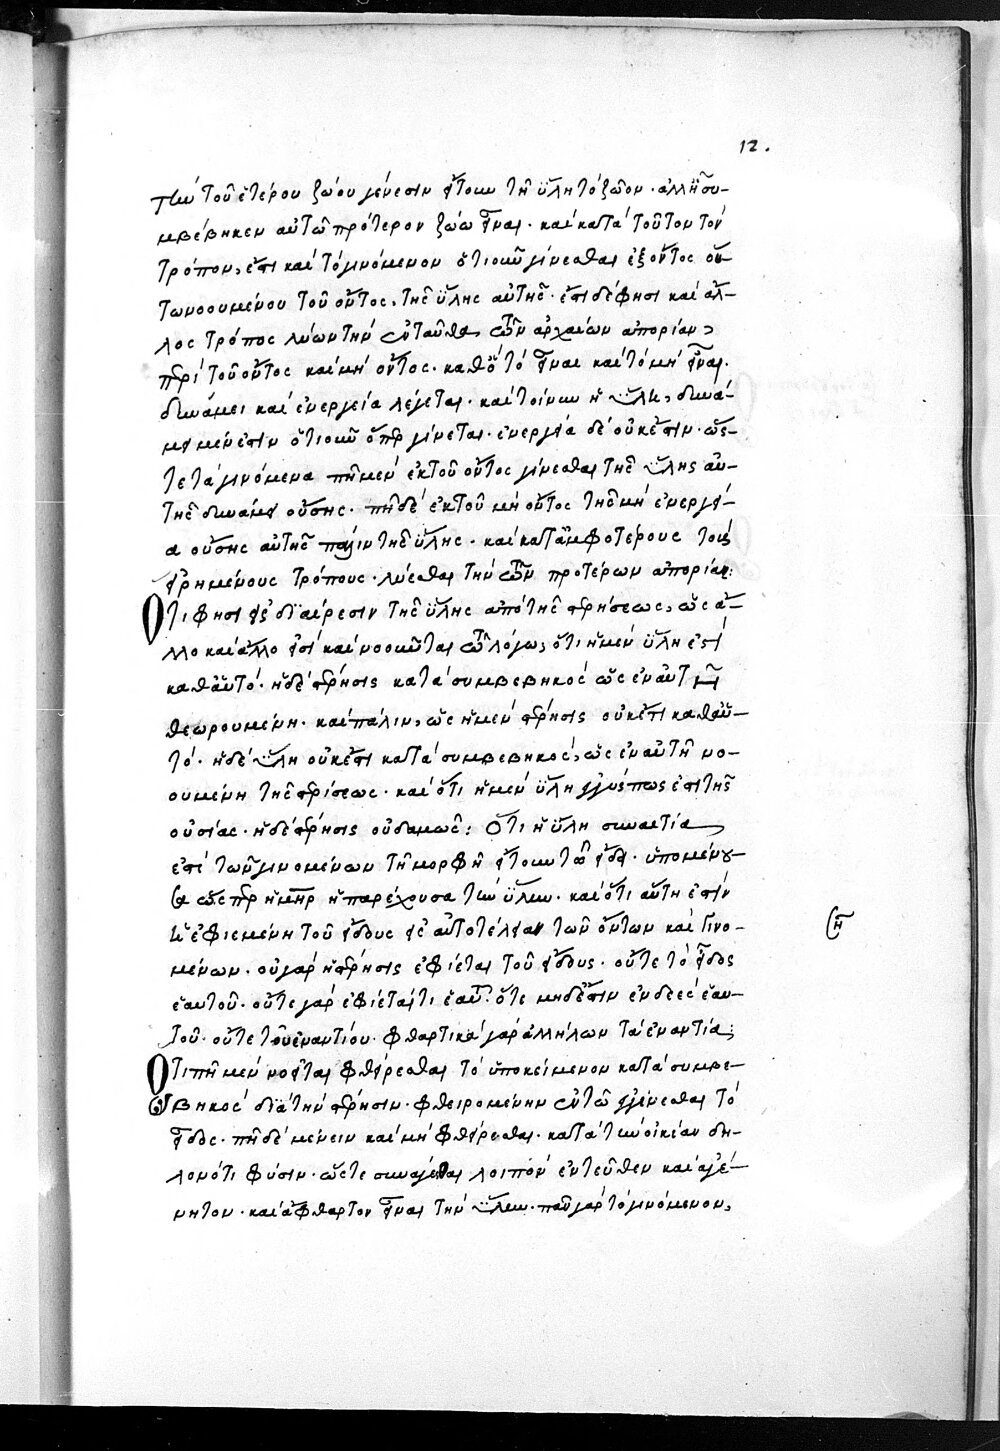 12.
τὴν τοῦ ἑτέρου ζώου γένεσιν ἤτοι τῇ ὕλῃ τὸ ζῶον· ἀλλ' ᾗ συ-
μβέβηκεν αὐτῷ πρότερον ζώῳ εἶναι· καὶ κατὰ τοῦτον τὸν
τρόπον, ἔστι καὶ τὸ γινόμενον ὁτιοῦν γίνεσθαι ἐξ ὄντος οὕ-
τω νοουμένου τοῦ ὄντος, τῆς ὕλης αὐτῆς· ἔστι δέ φησι καὶ ἄλ-
λος τρόπος λύων τὴν ἐνταῦθα τῶν ἀρχαίων ἀπορίαν,
περὶ τοῦ ὄντος καὶ μὴ ὄντος· καθ' ὃ τὸ εἶναι καὶ τὸ μὴ εἶναι·
δυνάμει καὶ ἐνεργεία λέγεται· καὶ τοίνυν ἡ ὕλη, δυνά-
μει μέν ἐστιν ὁτιοῦν ὅπερ γίνεται· ἐνεργεία δὲ οὐκ ἔστιν· ὥς-
τε τὰ γινόμενα πῆ μὲν ἐκ τοῦ ὄντος γίνεσθαι τῆς ὕλης αὐ-
τῆς δυνάμει οὔσης· πῆ δὲ ἐκ τοῦ μὴ ὄντος τῆς μὴ ἐνεργεί-
α οὔσης αὐτῆς πάλιν τῆς ὕλης· καὶ κατ' ἀμφοτέρους τοὺς
εἰρημένους τρόπους· λύεσθαι τὴν τῶν προτέρων ἀπορίαν:
Ὅτι φησὶ εἰς διαίρεσιν τῆς ὕλης ἀπὸ τῆς στερήσεως, ὡς ἄ-
λλο καὶ ἄλλο εἰσὶ καὶ νοοῦνται τῷ λόγω, ὅτι ἡ μὲν ὕλη ἐστὶ
καθ' αὑτό· ἡ δὲ στέρησις κατὰ συμβεβηκός ὡς ἐν αὐτῇ
θεωρουμένη· καὶ πάλιν, ὡς ἡ μὲν στέρησις οὐκ ἔστι καθ' αὑ-
τό· ἡ δὲ ὕλη οὐκ ἔστι κατὰ συμβεβηκός, ὡς ἐν αὐτῇ νο-
ουμένη τῆς στερίσεως· καὶ ὅτι ἡ μὲν ὕλη ἐγγύς πως ἐστὶ τῆς
οὐσίας· ἡ δὲ στέρησις οὐδαμῶς: Ὅτι ἡ ὕλη συναιτία
ἐστὶ τῶν γινομένων τῇ μορφῇ ἤτοι τῷ εἴδει· ὑπομένου-
σα ὥςπερ ἡ μηρ ἡ παρέχουσα τὴν ὕλην· καὶ ὅτι αὕτη ἐστὶν
ἡ ἐφιεμένη τοῦ εἴδους εἰς αὐτοτέλειαν τῶν ὄντων καὶ γινο-
μένων· οὐ γὰρ ἡ στέρησις ἐφίεται τοῦ εἴδους· οὔτε τὸ εἶδος
ἑαυτοῦ· οὔτε γὰρ ἐφίεταί τι ἑαυτοῦ· ὅτε μηδέ ἐστιν ἐνδεὲς ἑαυ-
τοῦ· οὔτε τοῦ ἐναντίου· φθαρτικὰ γὰρ ἀλλήλων τὰ ἐναντία:
Ὅτι πῆ μὲν νοεῖται φθείρεσθαι τὸ ὑποκείμενον κατὰ συμβε-
βηκὸς διὰ τὴν στέρησιν· φθειρομένην ἐν τῷ ἐγγίνεσθαι τὸ
εἶδος· πῆ δὲ μένειν καὶ μὴ φθείρεσθαι· κατὰ τὴν οἰκείαν δη-
λονότι φύσιν· ὥστε συνάγεται λοιπὸν ἐντεῦθεν καὶ ἀγέ-
νητον· καὶ ἄφθαρτον εἶναι τὴν ὕλην· πᾶν γὰρ τὸ γινόμενον,